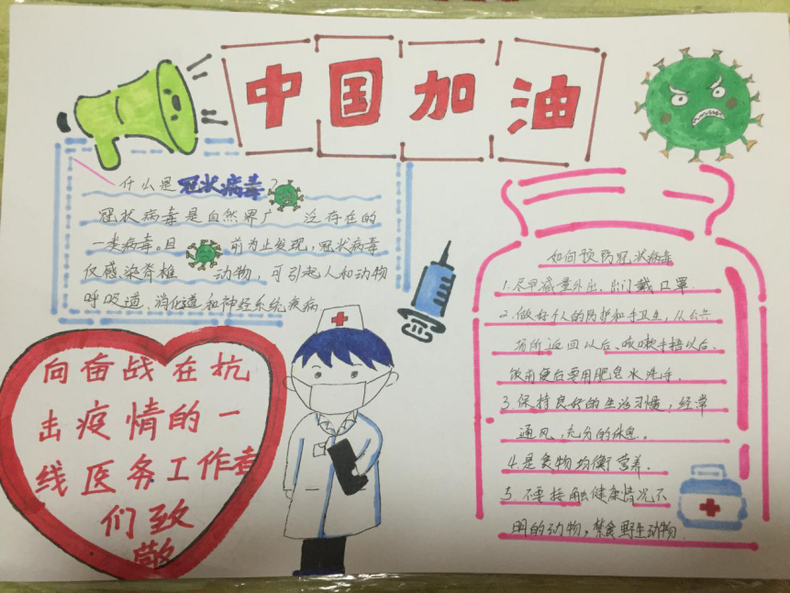 中国加油
什么是冠状病毒?
冠状病毒是自然界广泛存在的
一类病毒。目前为止发现,冠状病毒
仅感染脊椎动物,可引起人和动物
呼吸道、消化道和神经系统疾病
向奋战在抗
击疫情的一
线医务工作者
们致
敬
如何预防冠状病毒
1.尽减量外出,出门戴口罩
2.做好个人的防护和手卫生,从公共
场所返回以后、咳嗽手捂以后、
饭前便后要用肥皂水洗手。
3.保持良好的生活习惯,经常
通风,充分的休息。
4.是食物均衡营养.
5.不要接触健康情况不
明的动物,禁食野生动物.